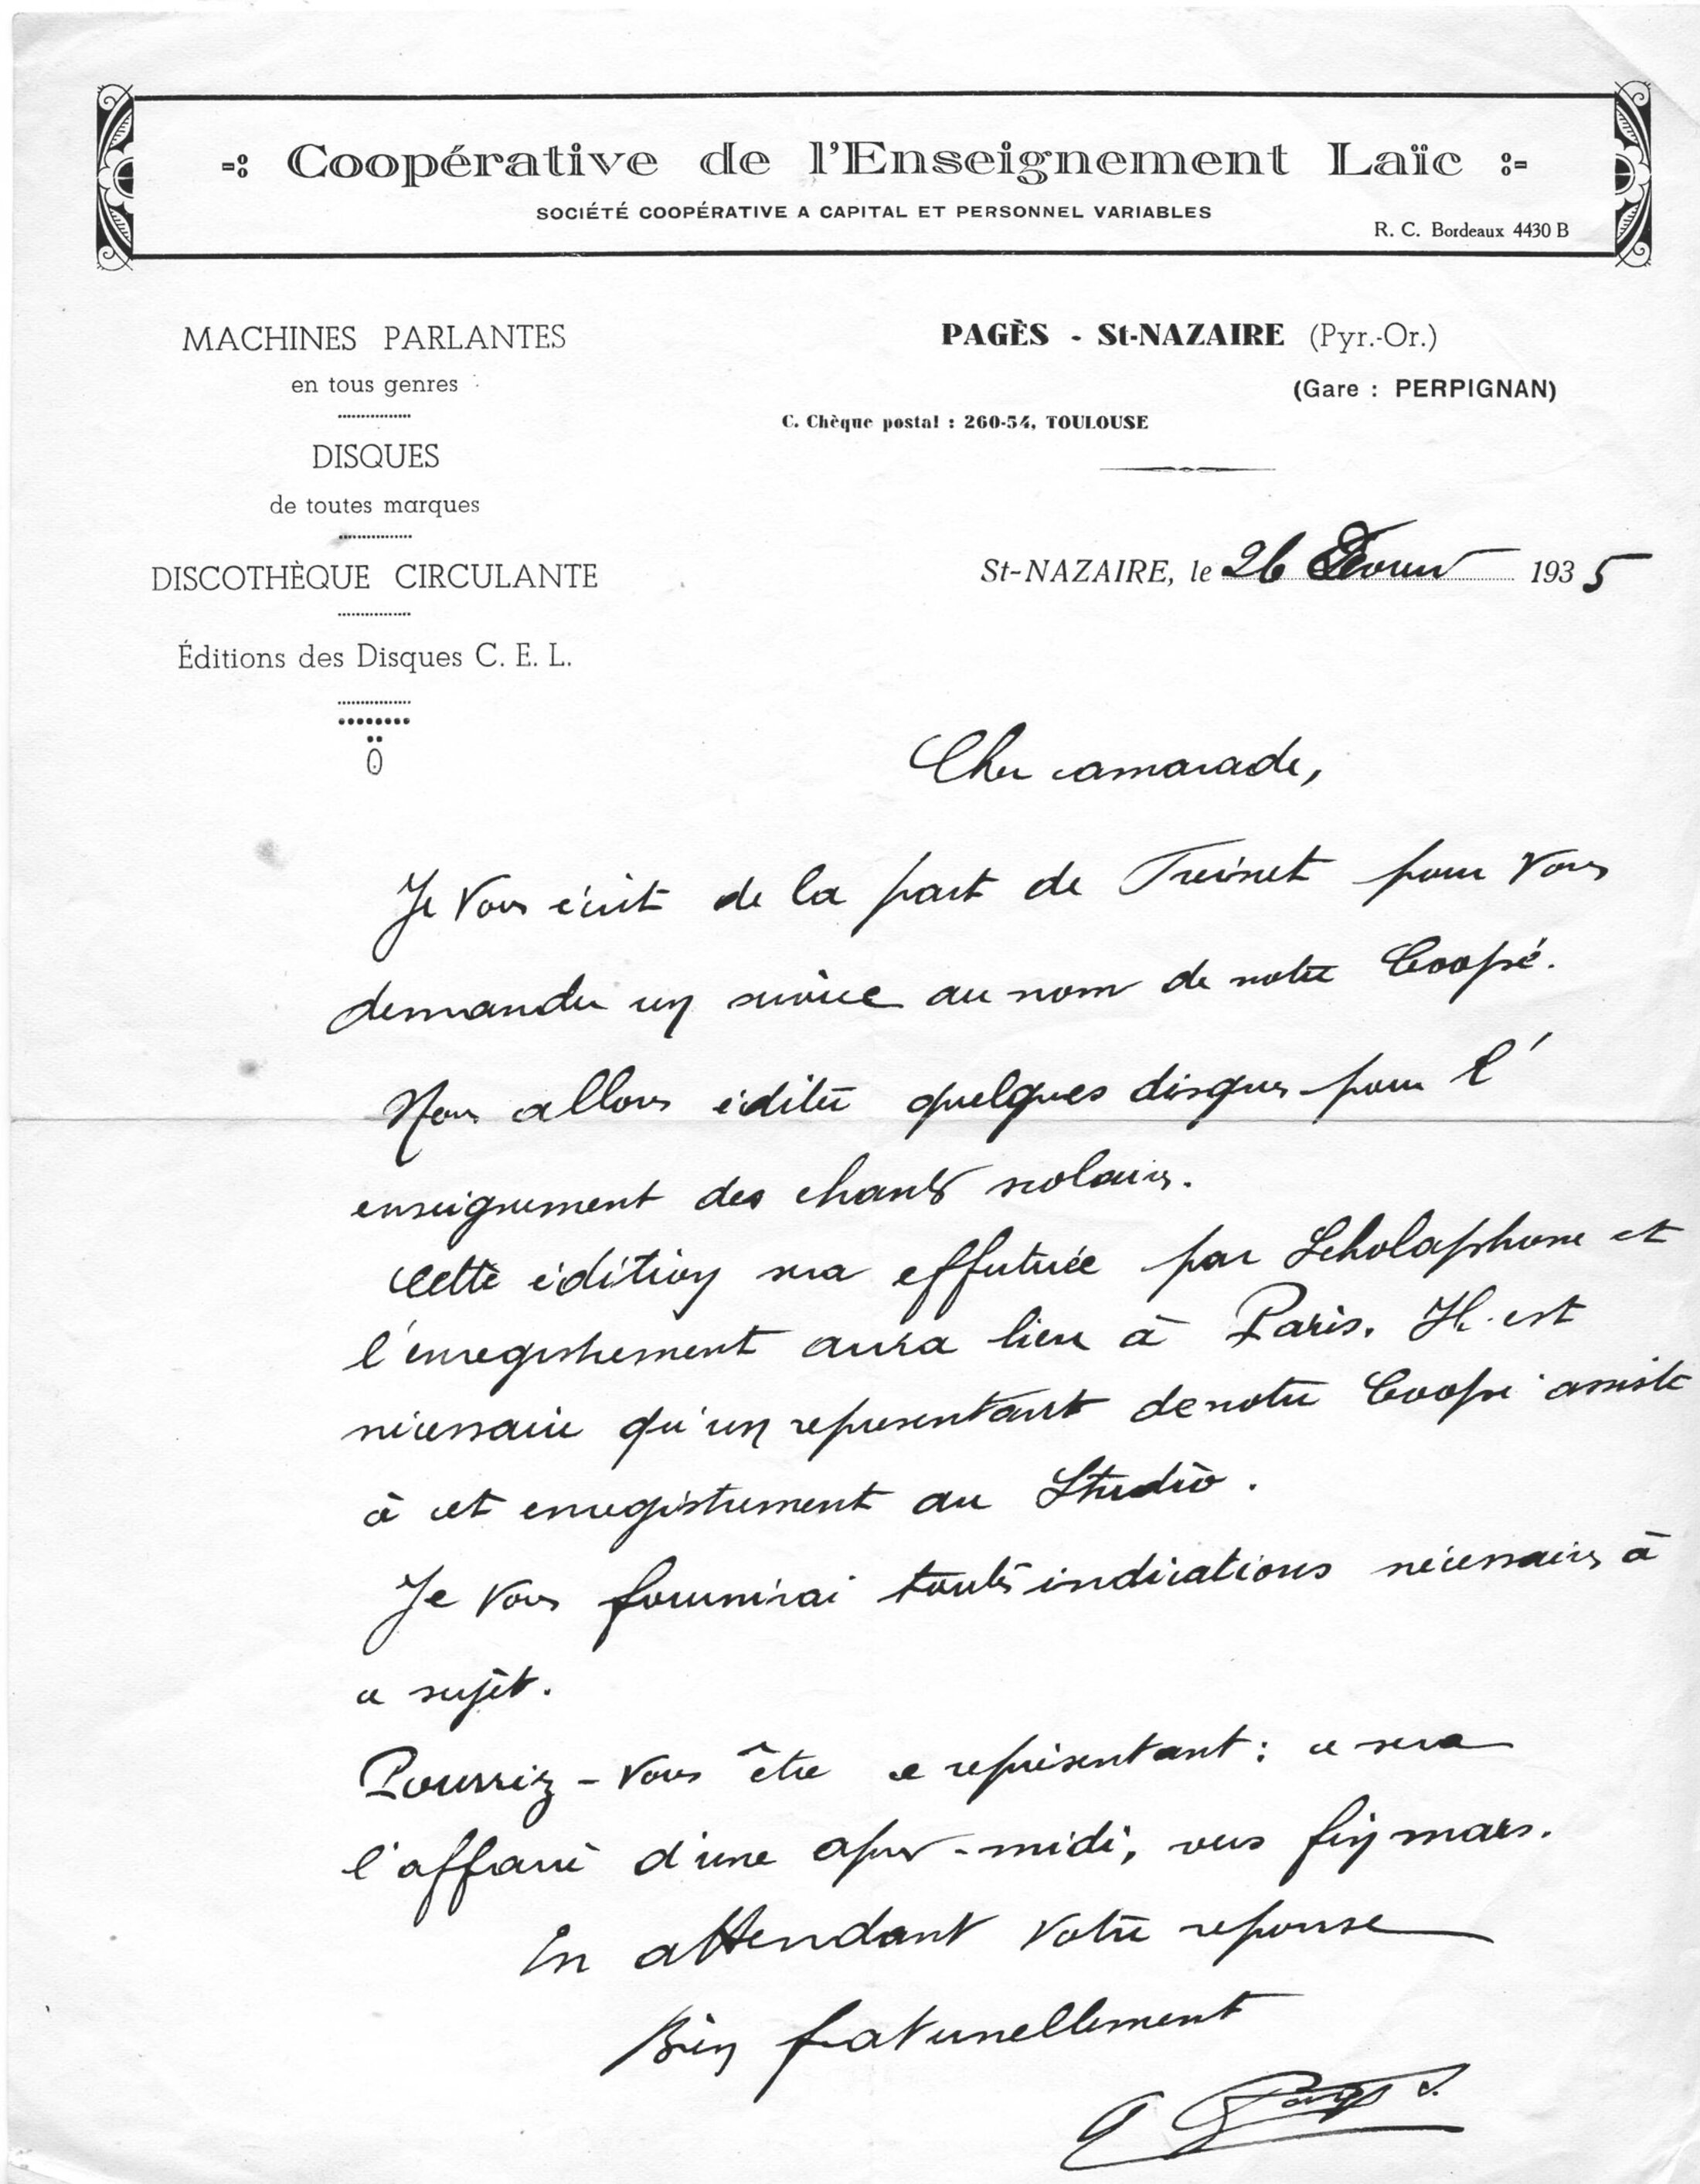 -: Coopérative de l'Enseignement Laïc :-
SOCIÉTÉ COOPÉRATIVE A CAPITAL ET PERSONNEL VARIABLES
R. C. Bordeaux 4430 B
MACHINES PARLANTES
en tous genres
DISQUES
de toutes marques
DISCOTHÈQUE CIRCULANTE
Éditions des Disques C. E. L.
PAGÈS - St-NAZAIRE (Pyr.-Or.)
(Gare : PERPIGNAN)
C. Chèque postal : 260-54, TOULOUSE
St-NAZAIRE, le 26 1935
Cher camarade,
Je vous écrit de la part de Freinet pour vous
demander un service au nom de notre Coopé.
Nous allons éditer quelques disques pour l'
enseignement des chants scolaires.
Cette édition sera effectuée par Scholaphone et
l'enregistrement aura lieu à Paris. Il est
nécessaire qu'un representant de notre Coopé assiste
à cet enregistrement au Studio.
Je vous fournirai toutes indications nécessaires à
ce sujet.
Pourriez-vous être ce représentant : ce sera
l'affaire d'une après-midi, vers fin mars.
En attendant votre reponse
Bien fraternellement
Pagès